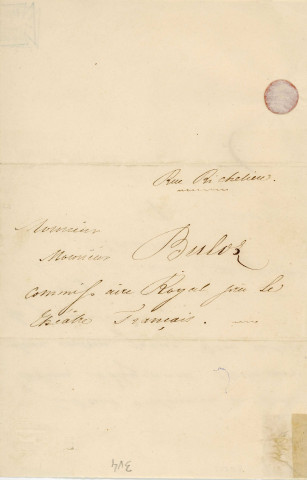 Rue Richelieu.
Monsieur
Monsieur Buloz
commissaire Royal près le
théâtre Français.